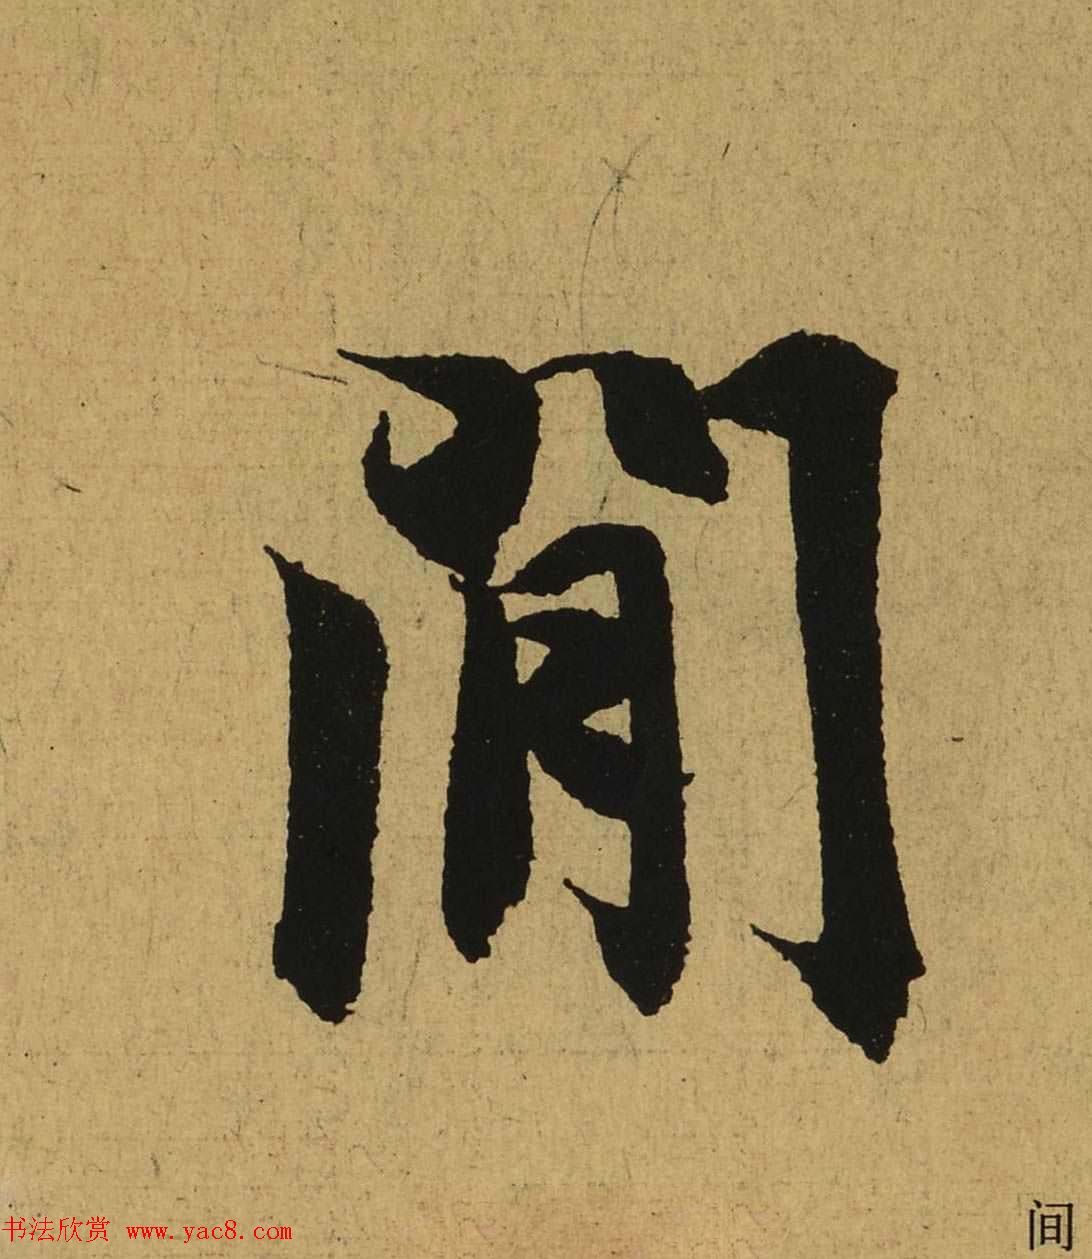 閒
书法欣赏 www.yac8.com
间